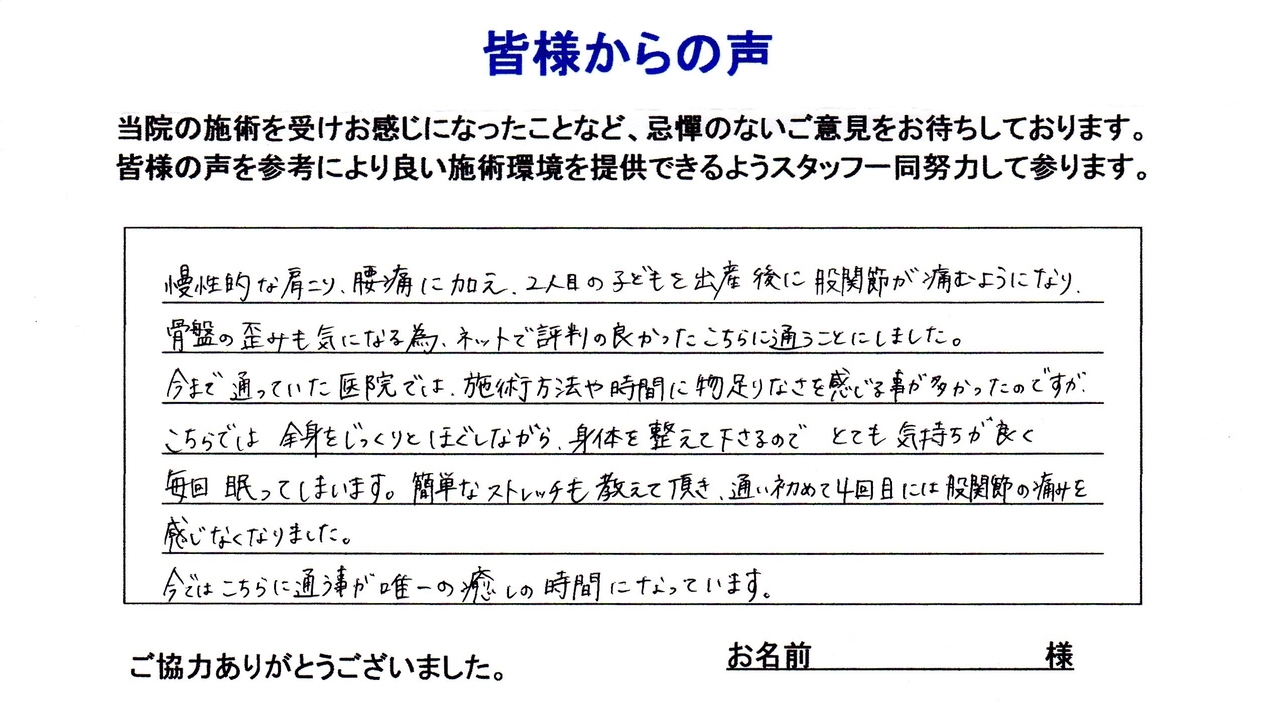 皆様からの声
当院の施術を受けお感じになったことなど、忌憚のないご意見をお待ちしております。
皆様の声を参考により良い施術環境を提供できるようスタッフ一同努力して参ります。
慢性的な肩こり、腰痛に加え、2人目の子どもを出産後に股関節が痛むようになり、
骨盤の歪みも気になる為、ネットで評判の良かったこちらに通うことにしました。
今まで通っていた医院では、施術方法や時間に物足りなさを感じる事が多かったのですが、
こちらでは全身をじっくりとほぐしながら、身体を整えて下さるので とても気持ちが良く
毎回眠ってしまいます。簡単なストレッチも教えて頂き、通い初めて4回目には股関節の痛みを
感じなくなりました。
今ではこちらに通う事が唯一の癒しの時間になっています。
ご協力ありがとうございました。
お名前 様